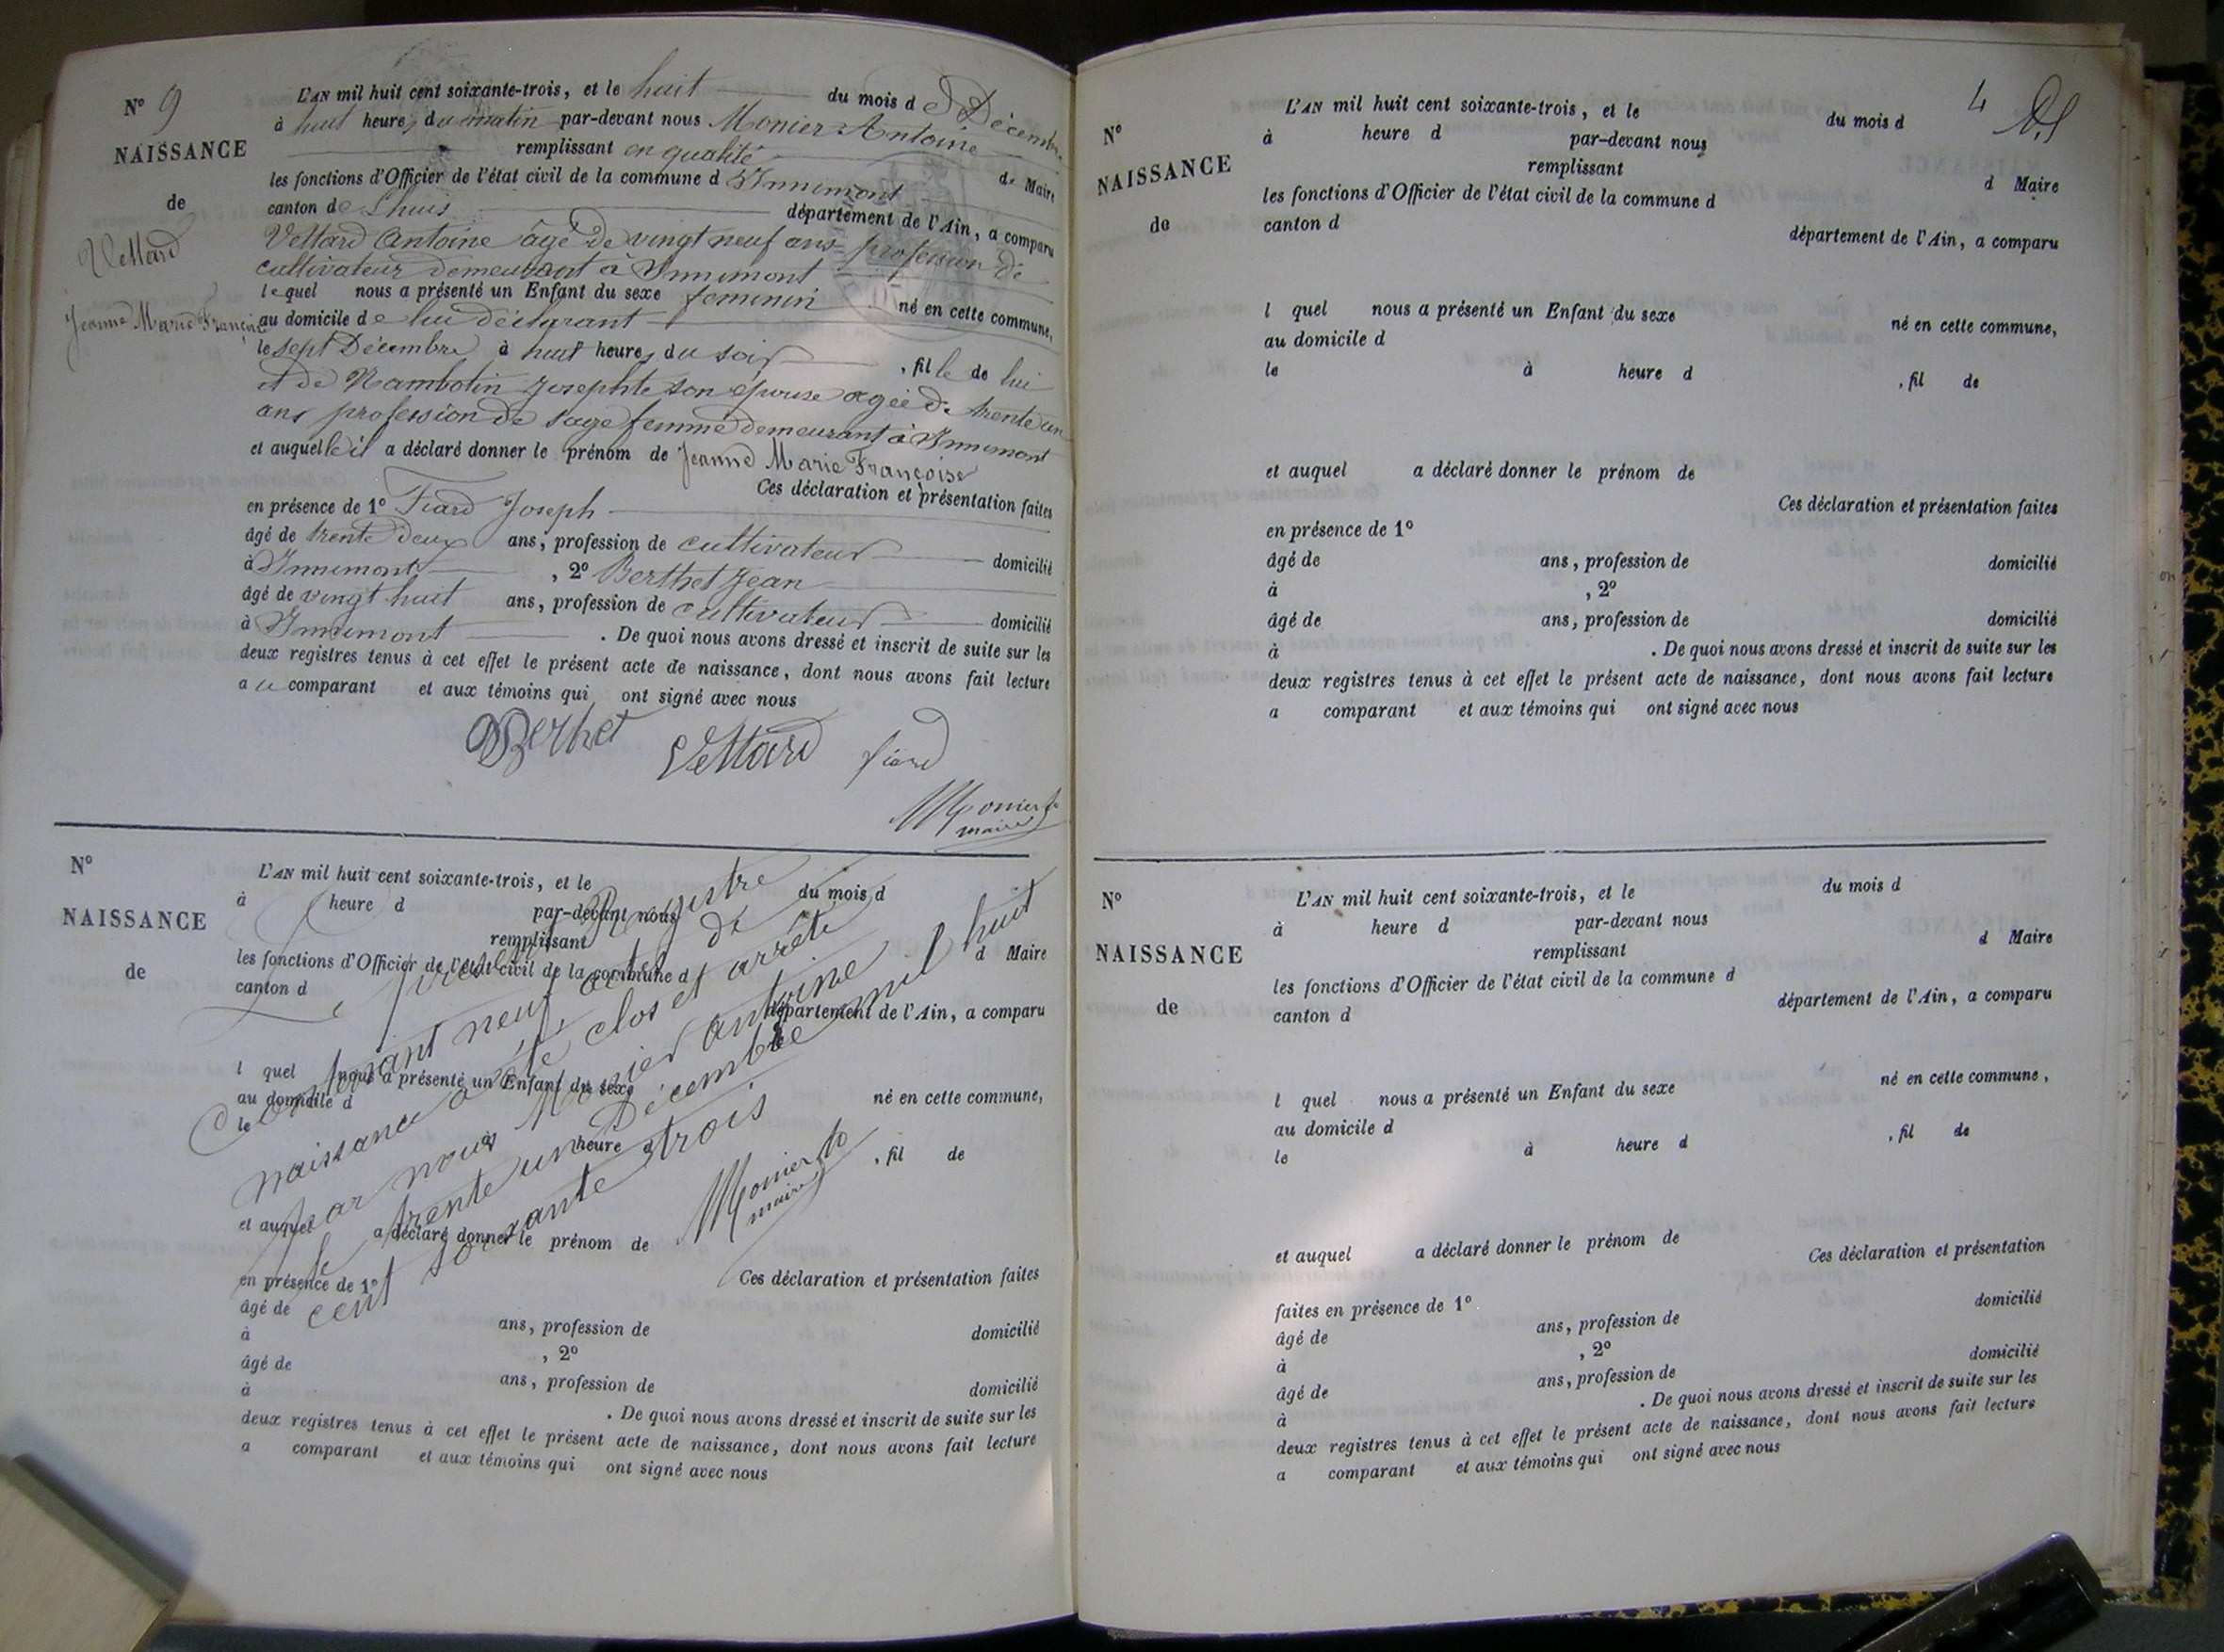 N° 9
NAISSANCE
de
Vettard
Jeanne Marie Françoise
L'AN mil huit cent soixante-trois, et le huit du mois de Décembre
à huit heures du matin par-devant nous Monier Antoine
remplissant en qualité de Maire
les fonctions d'Officier de l'état civil de la commune d'Innimont
canton de Lhuis département de l'Ain, a comparu
Vettard Antoine âgé de vingt neuf ans profession de
cultivateur demeurant à Innimont
lequel nous a présenté un Enfant du sexe feminin né en cette commune,
au domicile de lui déclarant
le sept Décembre à huit heures du soir, fille de lui
et de Nambotin Josephte son épouse agée de trente un
ans profession de sage femme demeurant à Innimont
et auquelle il a déclaré donner le prénom de Jeanne Marie Françoise
Ces déclaration et présentation faites
en présence de 1° Fiard Joseph
âgé de trente deux ans, profession de cultivateur domicilié
à Innimont, 2° Berthet Jean
âgé de vingt huit ans, profession de cultivateur domicilié
à Innimont. De quoi nous avons dressé et inscrit de suite sur les
deux registres tenus à cet effet le présent acte de naissance, dont nous avons fait lecture
au comparant et aux témoins qui ont signé avec nous
Berthet Vettard fiard
Monier
maire
N°
NAISSANCE
de
L'AN mil huit cent soixante-trois, et le du mois d
à heure d par-devant nous
remplissant d Maire
les fonctions d'Officier de l'état civil de la commune d
canton d département de l'Ain, a comparu
l quel nous a présenté un Enfant du sexe né en cette commune,
au domicile d
le à heure d, fil de
et auquel a déclaré donner le prénom de
Ces déclaration et présentation faites
en présence de 1°
âgé de ans, profession de domicilié
à, 2°
âgé de ans, profession de domicilié
à. De quoi nous avons dressé et inscrit de suite sur les
deux registres tenus à cet effet le présent acte de naissance, dont nous avons fait lecture
a comparant et aux témoins qui ont signé avec nous
Le présent Registre
Contenant neuf actes de
naissance a été clos et arrêté
par nous Monier antoine
le trente un Décembre mil huit
cent soixante trois
Monier
maire
4
N°
NAISSANCE
de
L'AN mil huit cent soixante-trois, et le du mois d
à heure d par-devant nous
remplissant d Maire
les fonctions d'Officier de l'état civil de la commune d
canton d département de l'Ain, a comparu
l quel nous a présenté un Enfant du sexe né en cette commune,
au domicile d
le à heure d, fil de
et auquel a déclaré donner le prénom de
Ces déclaration et présentation faites
en présence de 1°
âgé de ans, profession de domicilié
à, 2°
âgé de ans, profession de domicilié
à. De quoi nous avons dressé et inscrit de suite sur les
deux registres tenus à cet effet le présent acte de naissance, dont nous avons fait lecture
a comparant et aux témoins qui ont signé avec nous
N°
NAISSANCE
de
L'AN mil huit cent soixante-trois, et le du mois d
à heure d par-devant nous
remplissant d Maire
les fonctions d'Officier de l'état civil de la commune d
canton d département de l'Ain, a comparu
l quel nous a présenté un Enfant du sexe né en cette commune,
au domicile d
le à heure d, fil de
et auquel a déclaré donner le prénom de
Ces déclaration et présentation
faites en présence de 1°
âgé de ans, profession de domicilié
à, 2°
âgé de ans, profession de domicilié
à. De quoi nous avons dressé et inscrit de suite sur les
deux registres tenus à cet effet le présent acte de naissance, dont nous avons fait lecture
a comparant et aux témoins qui ont signé avec nous